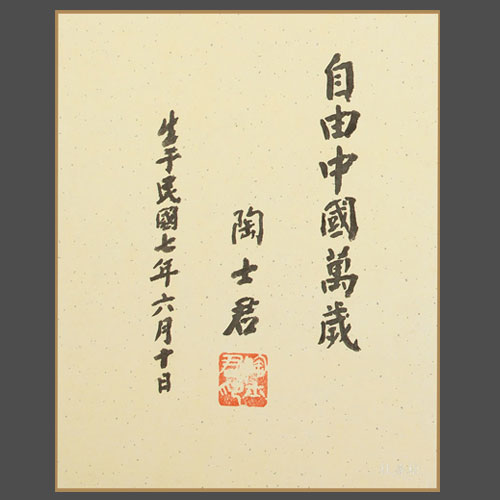 自由中國萬歲
陶士君
生于民國七年六月十日